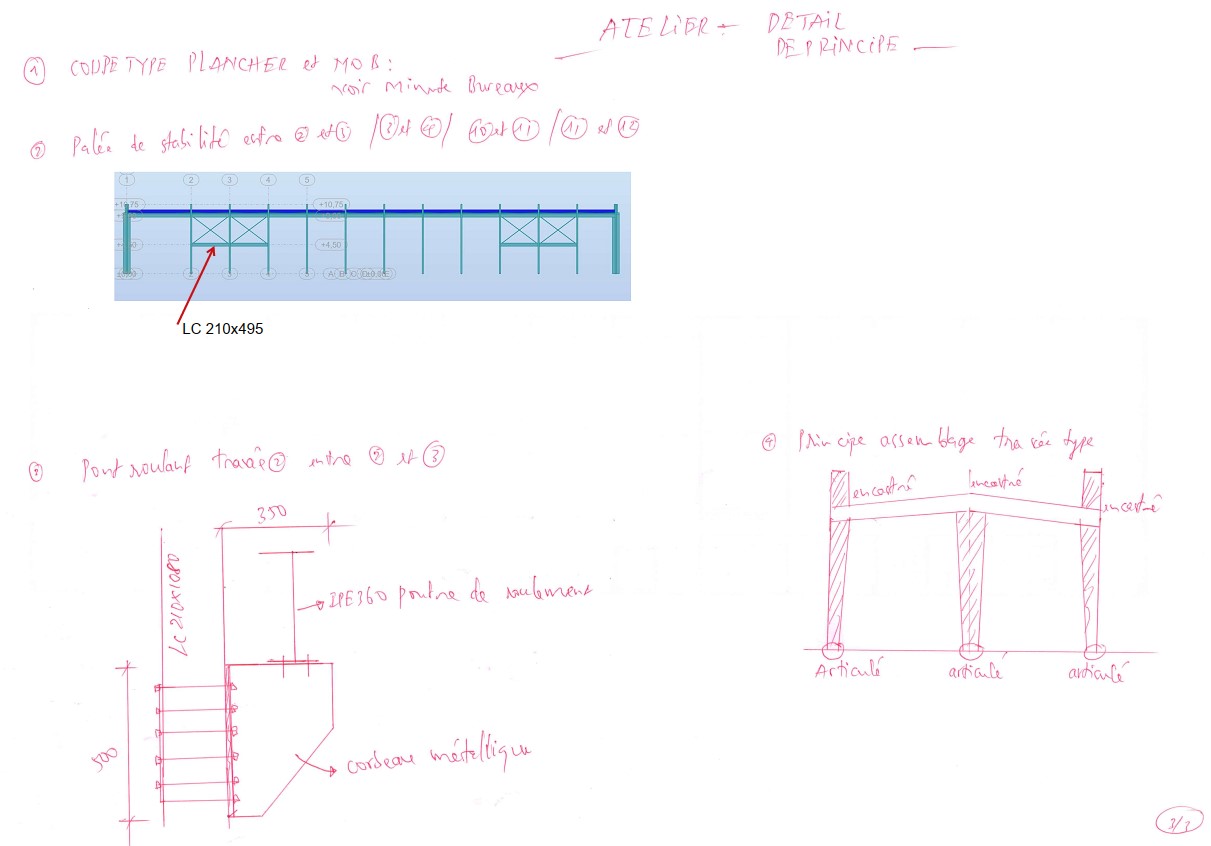 ATELIER - DETAIL
DE PRINCIPE
① COUPE TYPE PLANCHER et MOB :
voir minute Bureaux
② Palée de stabilité entre ② et ③ / ③ et ④ / ⑩ et ⑪ / ⑪ et ⑫
1 2 3 4 5
+10,75
+4,50
LC 210x495
③ Pont roulant travée ② entre ② et ③
350
LC 210x1080
IPE360 poutre de roulement
500
corbeau métallique
④ Principe assemblage travée type
encastré
encastré
encastré
Articulé
articulé
articulé
3/3